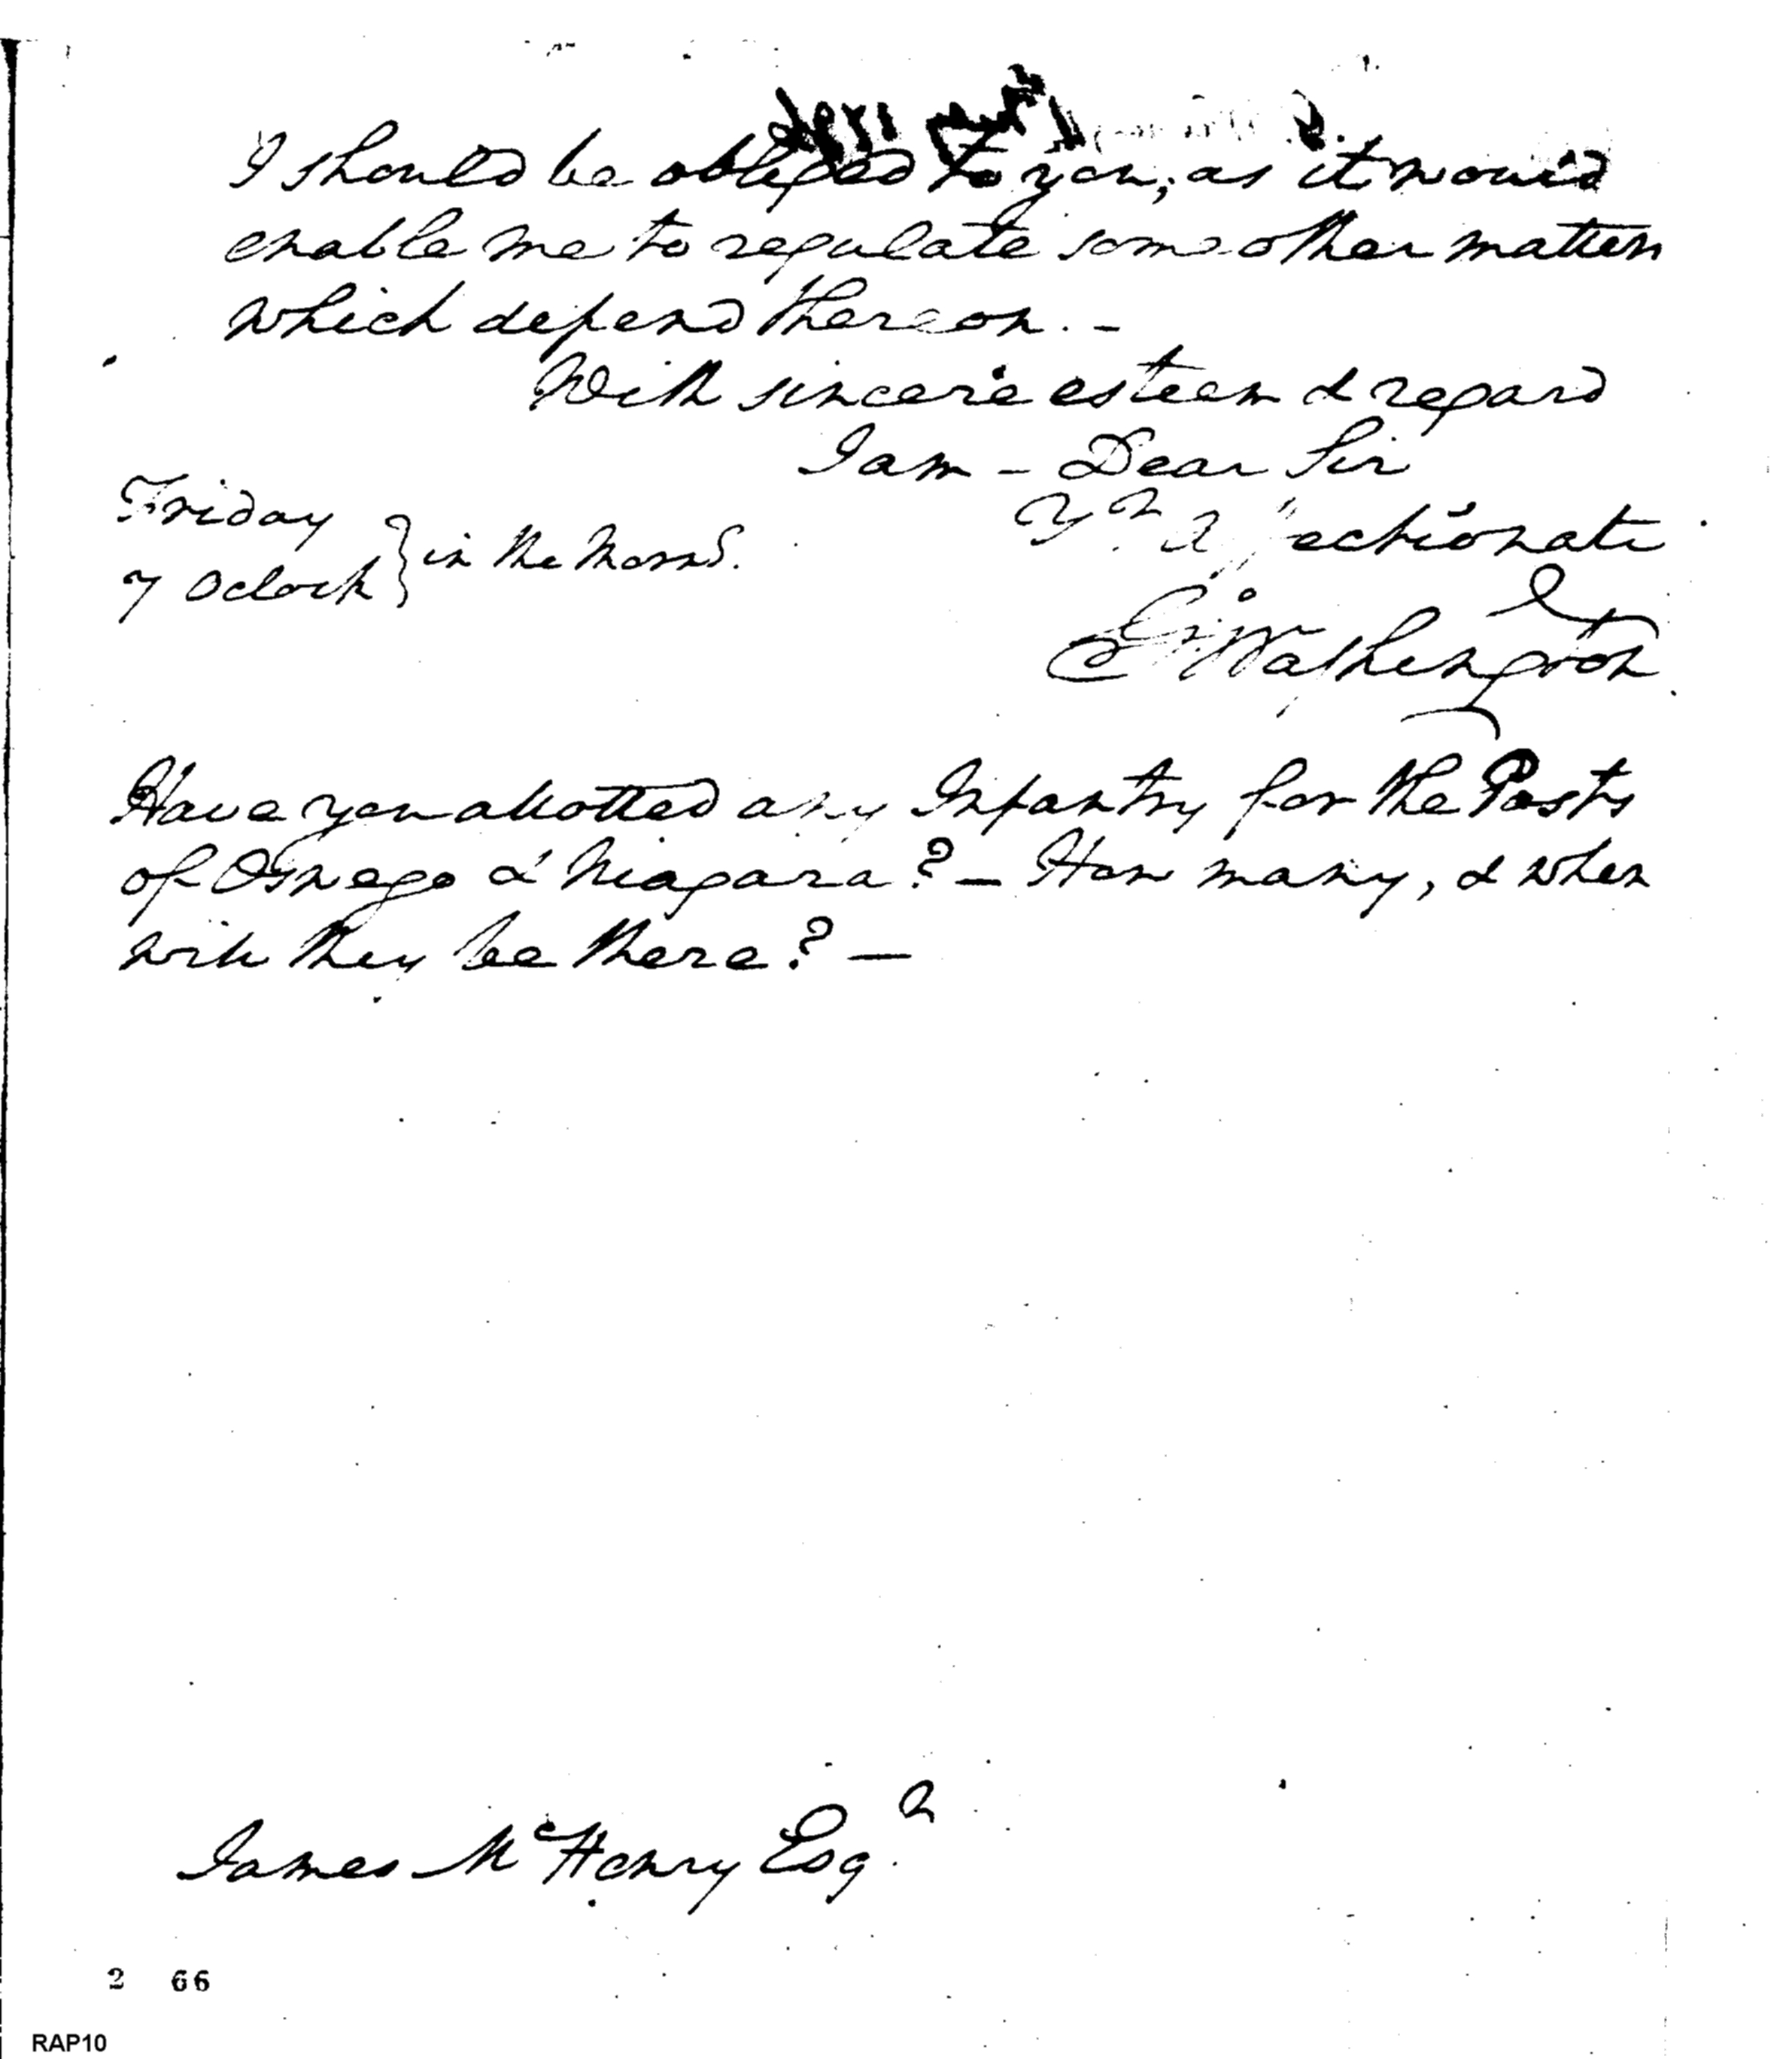 I should be obliged to you, as it would
enable me to regulate some other matters
which depend thereon. -
With sincere esteem & regard
I am - Dear Sir
Yr Affectionate
Friday
7 Oclock } in the Morng.
Go: Washington
Have you allotted any Infantry for the Posts
of Oswego & Niagara? - How many, & when
will they be there? -
James McHenry Esqr.
2 66
RAP10